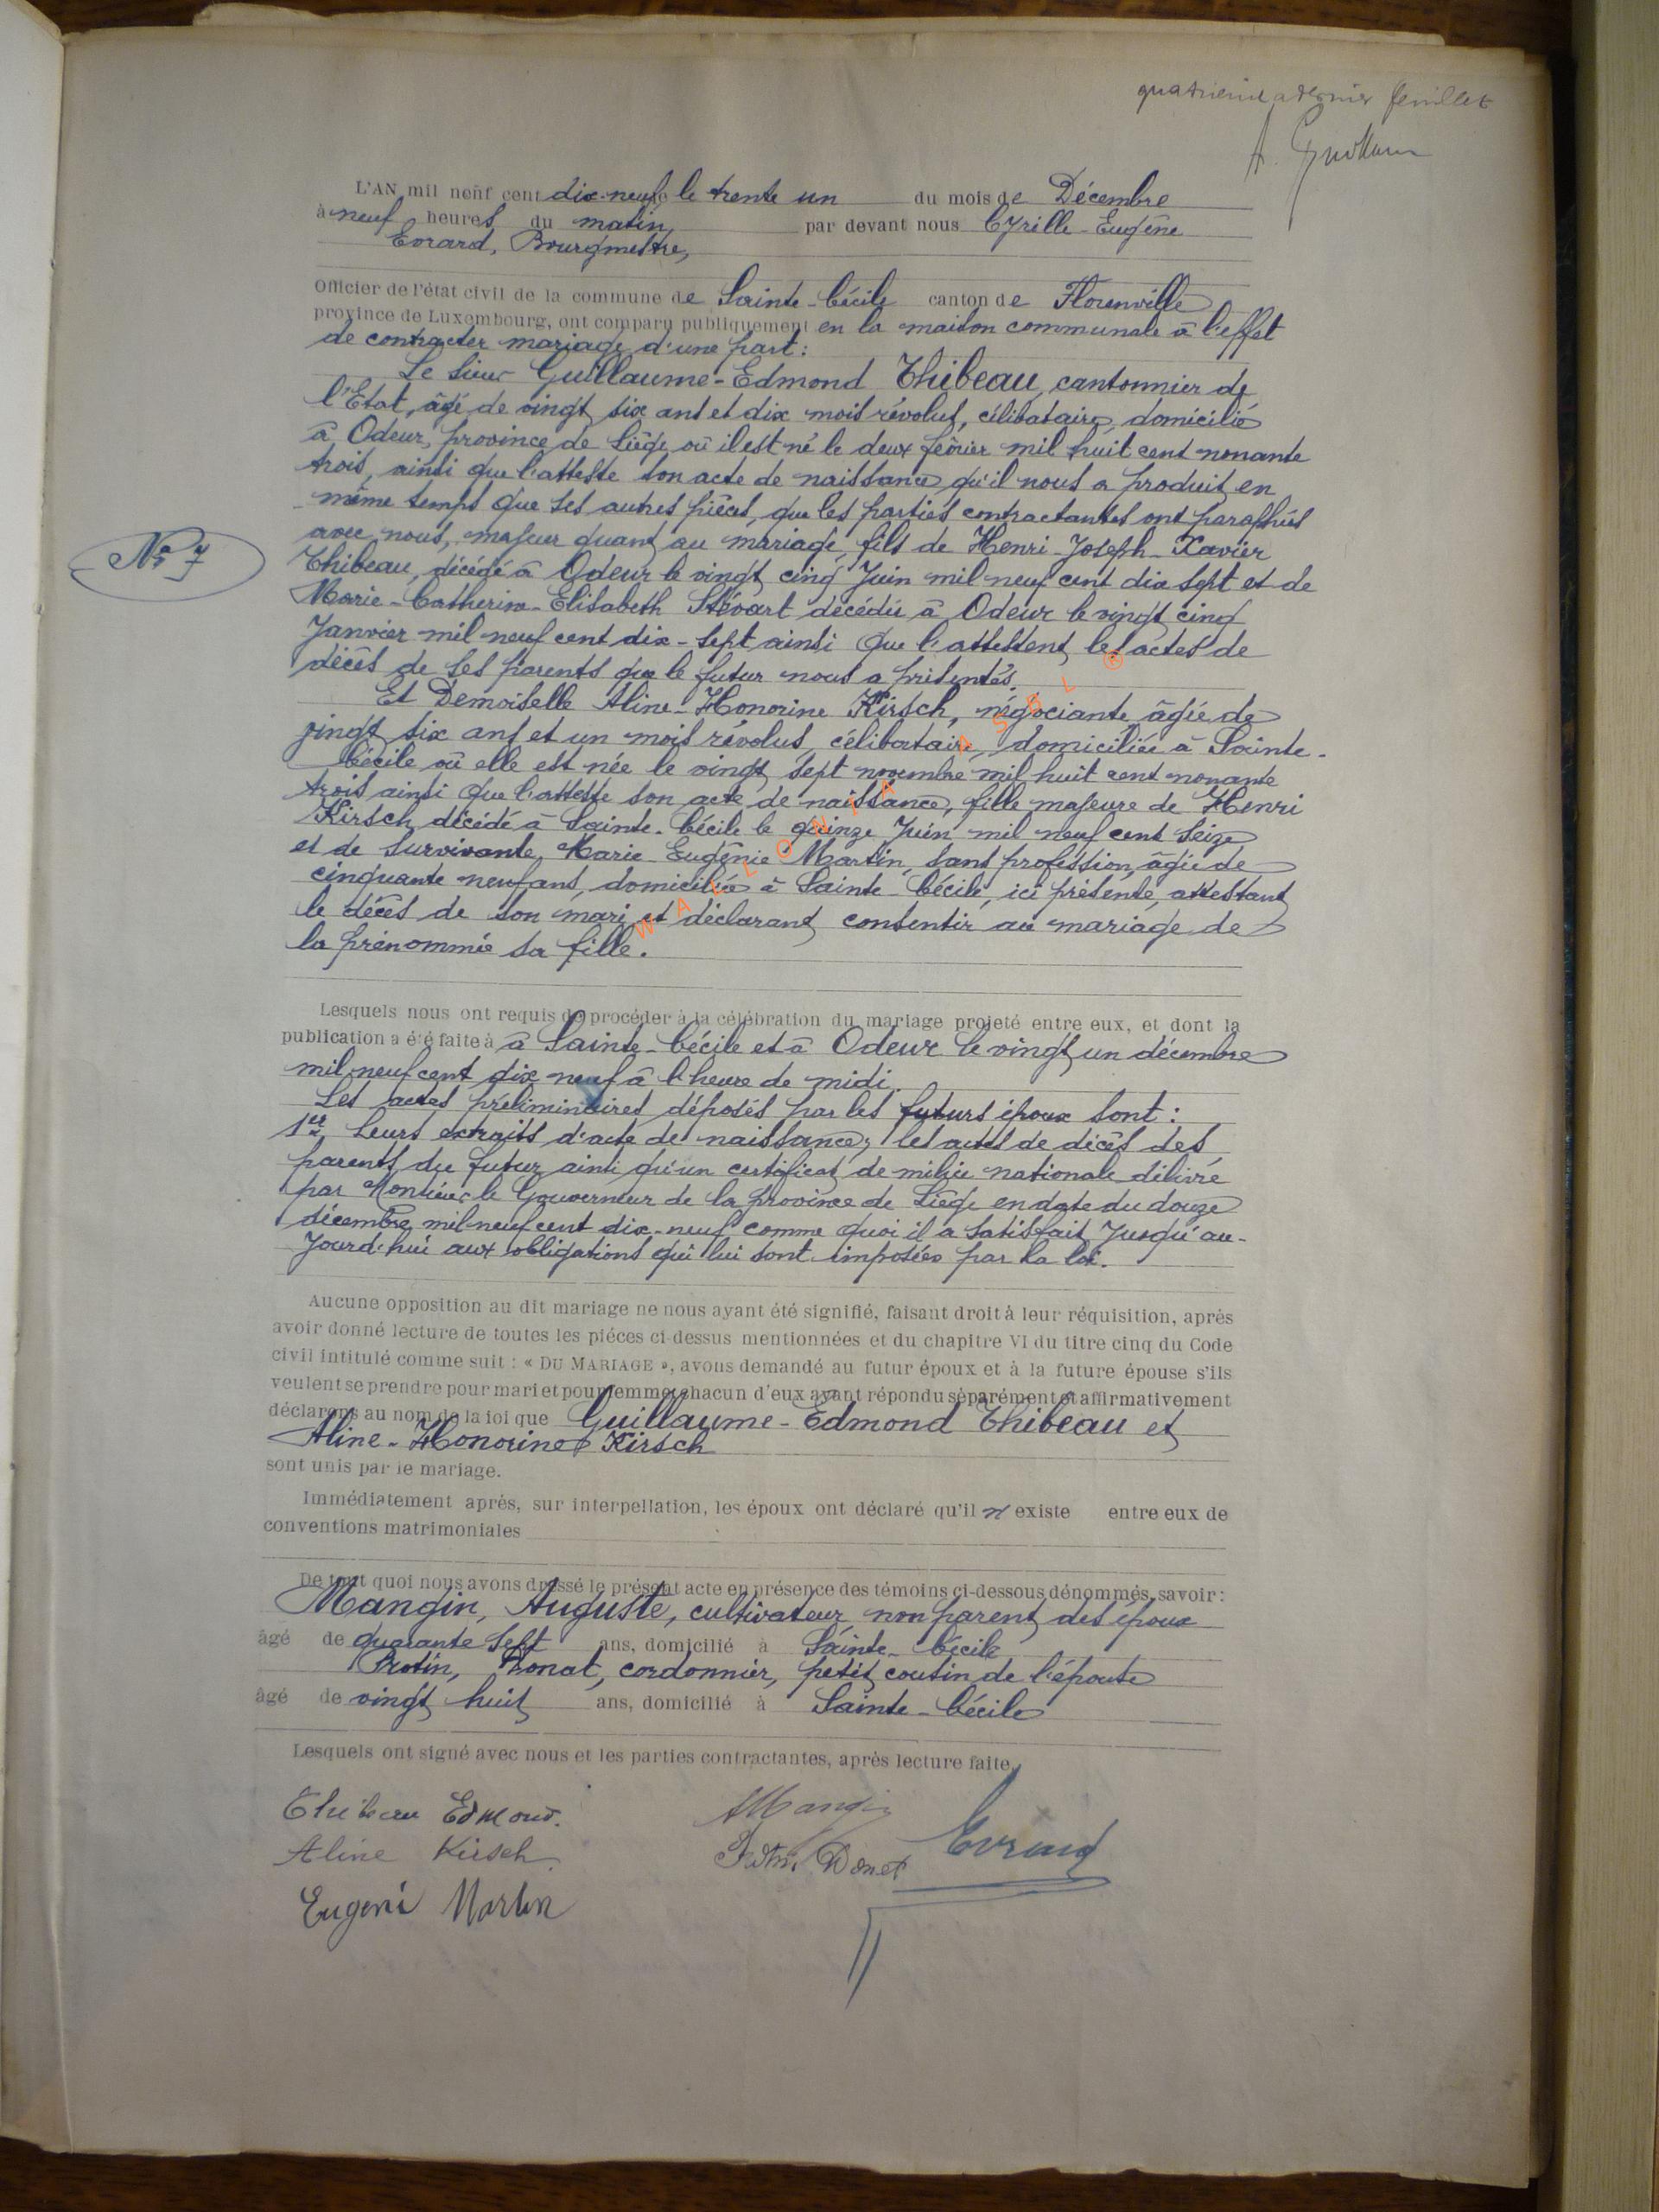 quatrième a dernier feuillet
L'AN mil neuf cent dix-neuf, le trente un du mois de Décembre
à neuf heures du matin, par devant nous Cyrille-Eugène
Evrard, Bourgmestre,
Officier de l'état civil de la commune de Sainte-Cécile canton de Florenville
province de Luxembourg, ont comparu publiquement en la maison communale à l'effet
de contracter mariage d'une part:
Le Sieur Guillaume-Edmond Thibeau, cantonnier de
l'Etat, âgé de vingt six ans et dix mois révolus, célibataire, domicilié
à Odeur, province de Liège où il est né le deux février mil huit cent nonante
trois, ainsi que l'atteste son acte de naissance qu'il nous a produit en
même temps que ses autres pièces, que les parties contractantes ont paraphés
N° 7
avec nous, majeur quant au mariage, fils de Henri-Joseph-Xavier
Thibeau, décédé à Odeur le vingt cinq Juin mil neuf cent dix sept et de
Marie-Catherine-Elisabeth Stévart décédée à Odeur le vingt cinq
Janvier mil neuf cent dix-sept ainsi que l'attestent les actes de
décès de ses parents que le futur nous a présentés.
Et Demoiselle Aline-Honorine Kirsch, négociante, âgée de
vingt six ans et un mois révolus, célibataire, domiciliée à Sainte-
Cécile où elle est née le vingt sept novembre mil huit cent nonante
trois ainsi que l'atteste son acte de naissance, fille majeure de Henri
Kirsch décédé à Sainte-Cécile le quinze Juin mil neuf cent seize
et de survivante Marie-Eugénie Martin, sans profession, âgée de
cinquante neuf ans, domiciliée à Sainte-Cécile, ici présente, attestant
le décès de son mari et déclarant consentir au mariage de
la prénommée sa fille.
WALLONIA ASBL ©
Lesquels nous ont requis de procéder à la célébration du mariage projeté entre eux, et dont la
publication a été faite à à Sainte-Cécile et à Odeur le vingt un décembre
mil neuf cent dix neuf à l'heure de midi.
Les actes préliminaires déposés par les futurs époux sont:
1er Leurs extraits d'acte de naissance, les actes de décès des
parents du futur ainsi qu'un certificat de milice nationale délivré
par Monsieur le Gouverneur de la province de Liège en date du douze
décembre mil neuf cent dix-neuf comme quoi il a satisfait jusqu'au-
jourd'hui aux obligations qui lui sont imposées par la loi.
Aucune opposition au dit mariage ne nous ayant été signifié, faisant droit à leur réquisition, après
avoir donné lecture de toutes les pièces ci-dessus mentionnées et du chapitre VI du titre cinq du Code
civil intitulé comme suit : « DU MARIAGE », avons demandé au futur époux et à la future épouse s'ils
veulent se prendre pour mari et pour femme, chacun d'eux ayant répondu séparément et affirmativement
déclarons au nom de la loi que Guillaume-Edmond Thibeau et
Aline-Honorine Kirsch
sont unis par le mariage.
Immédiatement après, sur interpellation, les époux ont déclaré qu'il n'existe entre eux de
conventions matrimoniales
De tout quoi nous avons dressé le présent acte en présence des témoins ci-dessous dénommés, savoir :
Mangin, Auguste, cultivateur, non parent des époux
âgé de quarante sept ans, domicilié à Sainte-Cécile
Protin, Donat, cordonnier, petit cousin de l'épouse
âgé de vingt huit ans, domicilié à Sainte-Cécile
Lesquels ont signé avec nous et les parties contractantes, après lecture faite,
Thibeau Edmond. A Mangin
Aline Kirsch. Donat Evrard
Eugéni Martin